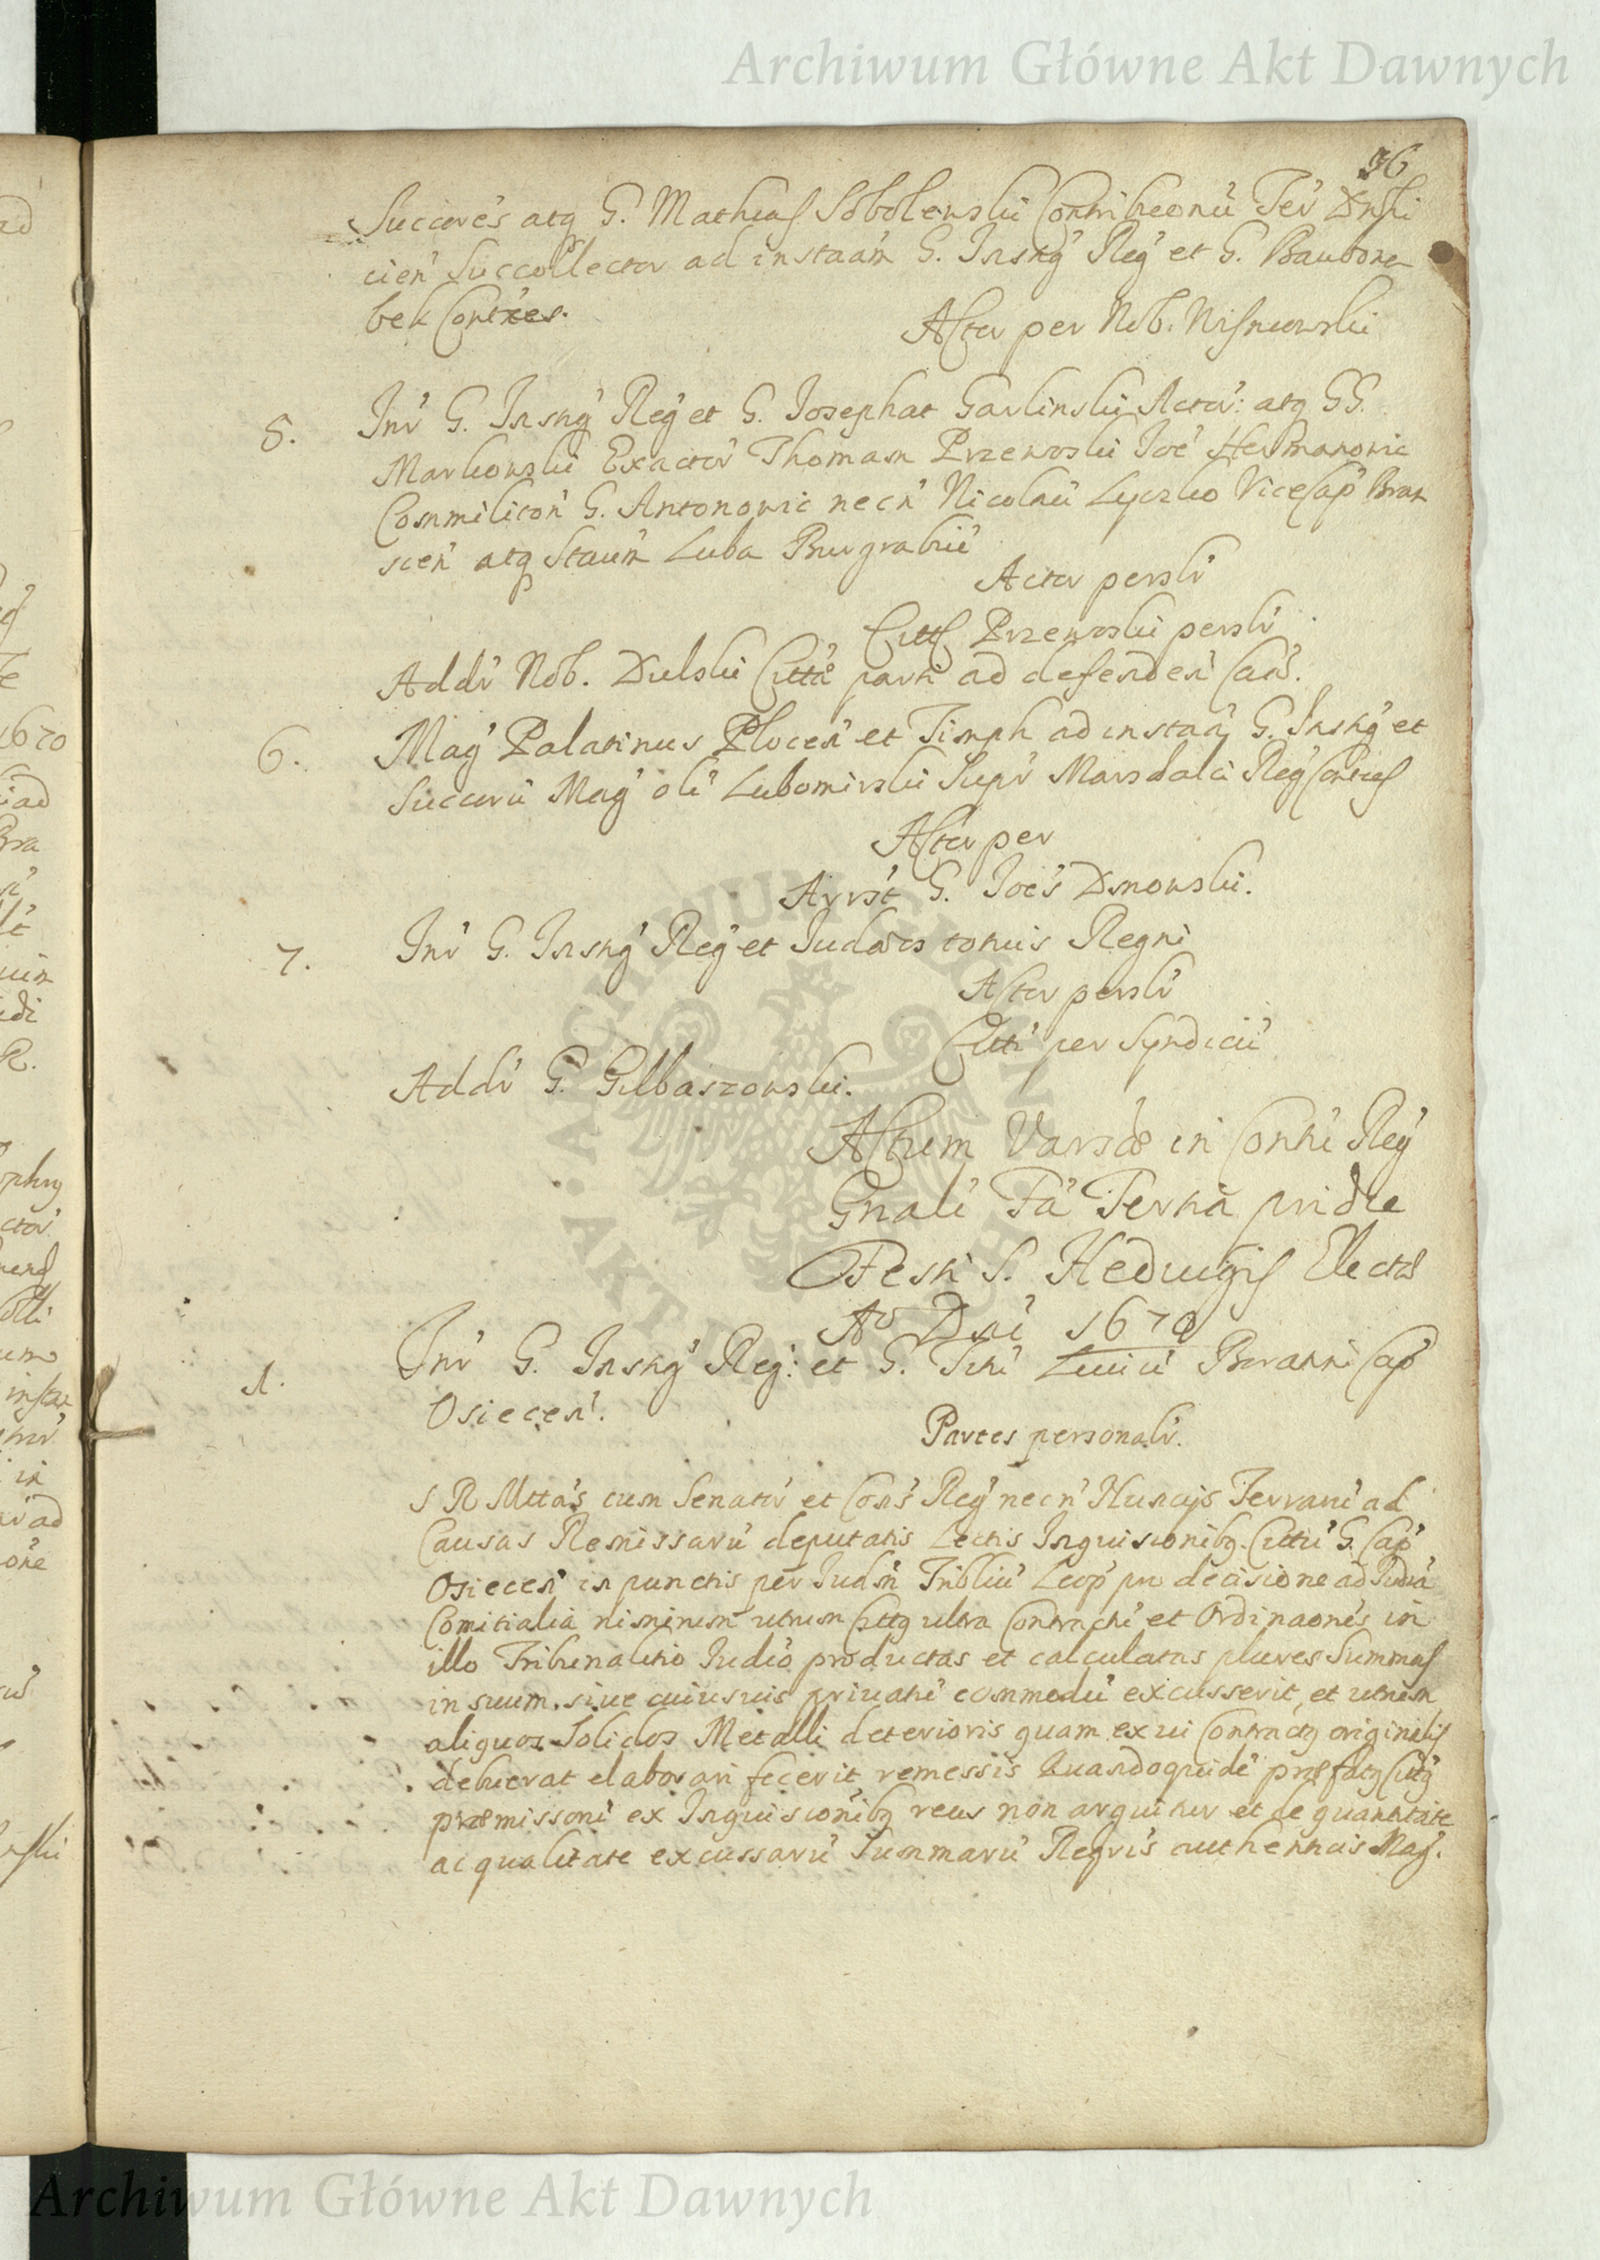 Archiwum Główne Akt Dawnych
36
Succores atq G. Mathias Sobolewski Contribueonu Ter
cien Succollector ad instaam G. Inskg Reg et G. Baubone
bek Contres.
Actor per Nob. Wisniowski
5. Inr G. Inskg Reg et G. Josephat Garlinski Actor: atq GG.
Markowski Exactor Thomam Przewoski Joe Hermanowic
Commiliton G. Antonowic necn Nicolau Lyczko ViceCap Bran
scen atq Staum Luba Burgrabiu
Actor persli
Citt Przewoski persli
Addr Nob. Dulski Citta parti ad defenden Cau.
6. Mag Palatinus Plocen et Timph ad instaa G. Inskg et
Succoru Mag oli Lubomirski Supr Marsdalci Reg
Actor per
Arrst G. Joes Dmowski.
7. Inr G. Inskg Reg et Judaeos totius Regni
Actor persli
Citti per Syndicu
Addr G. Gilbaszowski.
Actum Varsae in Conti Reg
Gnali Fa Tertia pridie
Festi S. Hedwigis Electae
Ao Dni 1670
1. Inr G. Inskg Reg: et G. Titi Liuii Boratini Cap
Osiecen.
Partes personalr.
S R Mttas cum Senator et Cons Reg necn Nuncijs Terraru ad
Causas Remissaru deputatis Lectis Inquisionibq Cittu G. Cap
Osiecen in punctis per Judm Tribliu Leop pro decisione ad Judia
Comitialia nimirum utrum Cittq ultra Contractu et Ordinaones in
illo Tribunalitio Judio productas et calculatas plures Summas
in suum siue cuiusuis priuati commodu excusserit et utrum
aliquos Solidos Metalli deterioris quam ex ui Contractq originalis
debuerat elaborari fecerit remessis Quandoquide praefatq Cittq
praemissoru ex Inquisionibq reus non arguitur et de quantitate
ac qualitate excussaru Summaru Regris authenticis Mag.
Archiwum Główne Akt Dawnych